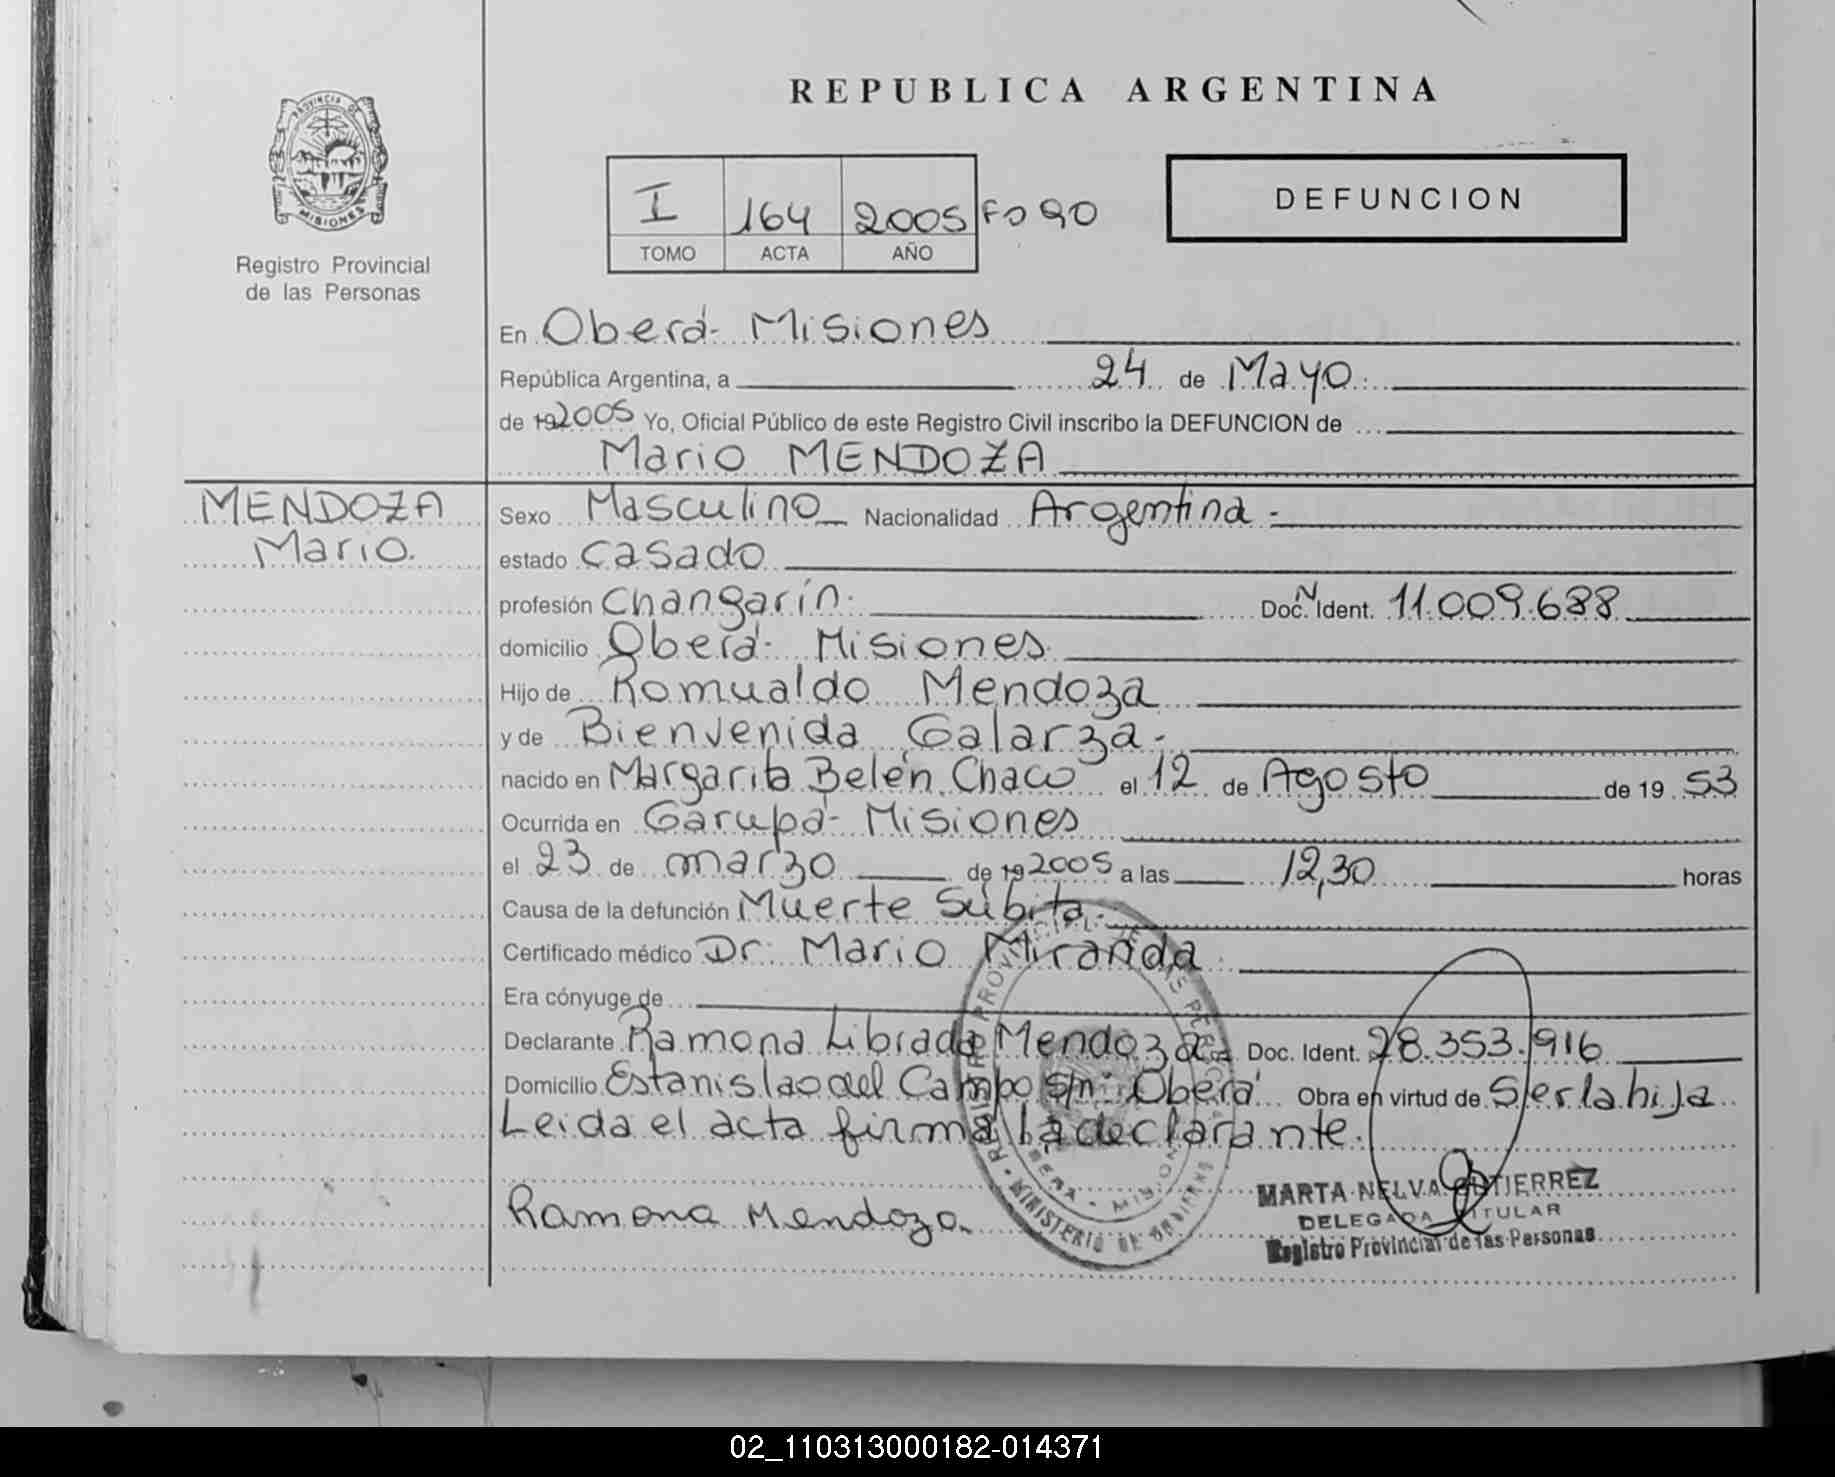 REPUBLICA ARGENTINA
PROVINCIA DE
MISIONES
Registro Provincial
de las Personas
I 164 2005 Fo 90
TOMO ACTA AÑO
DEFUNCION
En Oberá- Misiones
República Argentina, a 24 de Mayo
de 192005 Yo, Oficial Público de este Registro Civil inscribo la DEFUNCION de
Mario MENDOZA
MENDOZA
Mario.
Sexo Masculino Nacionalidad Argentina -
estado Casado
profesión Changarín. Doc. N Ident. 11.009.688
domicilio Oberá- Misiones.
Hijo de Romualdo Mendoza
y de Bienvenida Galarza-
nacido en Margarita Belén Chaco el 12 de Agosto de 19 53
Ocurrida en Garupá- Misiones
el 23 de marzo de 192005 a las 12,30 horas
Causa de la defunción Muerte Súbita.
Certificado médico Dr. Mario Miranda
Era cónyuge de
Declarante Ramona Librada Mendoza Doc. Ident. 28.353.916
Domicilio Estanislao del Campo s/n: Oberá Obra en virtud de Ser la hija
Leida el acta firma la declarante.
Ramona Mendoza
MARTA NELVA GUTIERREZ
DELEGADA TITULAR
Registro Provincial de las Personas
02_110313000182-014371